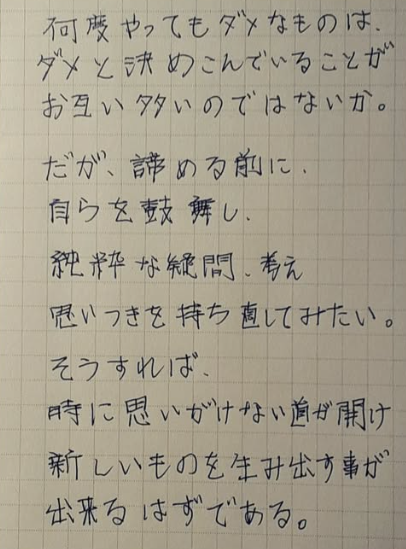 何度やってもダメなものは、
ダメと決めこんでいることが
お互い多いのではないか。
だが、諦める前に、
自らを鼓舞し、
純粋な疑問、考え
思いつきを持ち直してみたい。
そうすれば、
時に思いがけない道が開け
新しいものを生み出す事が
出来るはずである。